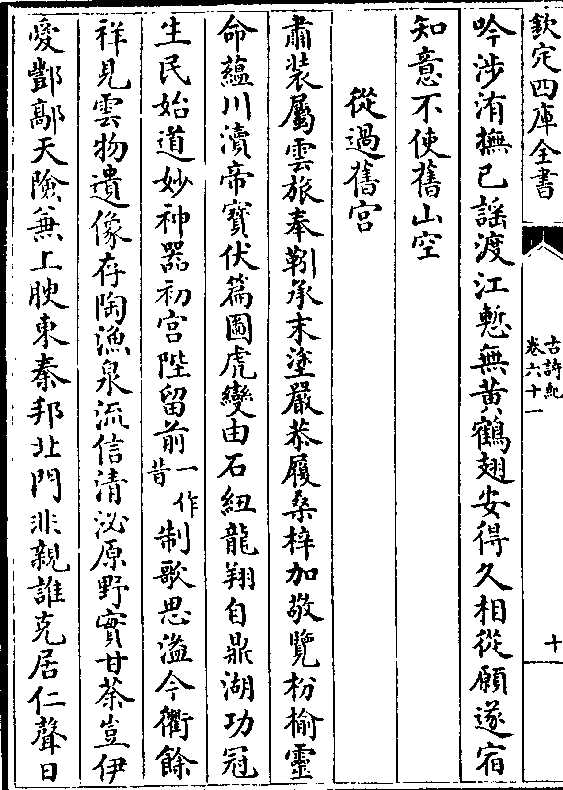 欽定四庫全書
古詩紀
卷六十一
十
吟涉洧撫已謡渡江慙無黄鶴翅安得久相從願遂宿
知意不使舊山空
從過舊宫
肅装屬雲旅奉靷承末塗嚴恭履桑梓加敬覽枌榆靈
命藴川瀆帝寳伏篇圖虎變由石紐龍翔自鼎湖功冠
生民始道妙神器初宫陛留前一作昔制歌思溢今衢餘
祥見雲物遺像存陶漁泉流信清泌原野實甘荼豈伊
愛酆鄗天險兼上腴東秦邦北門非親誰克居仁聲日